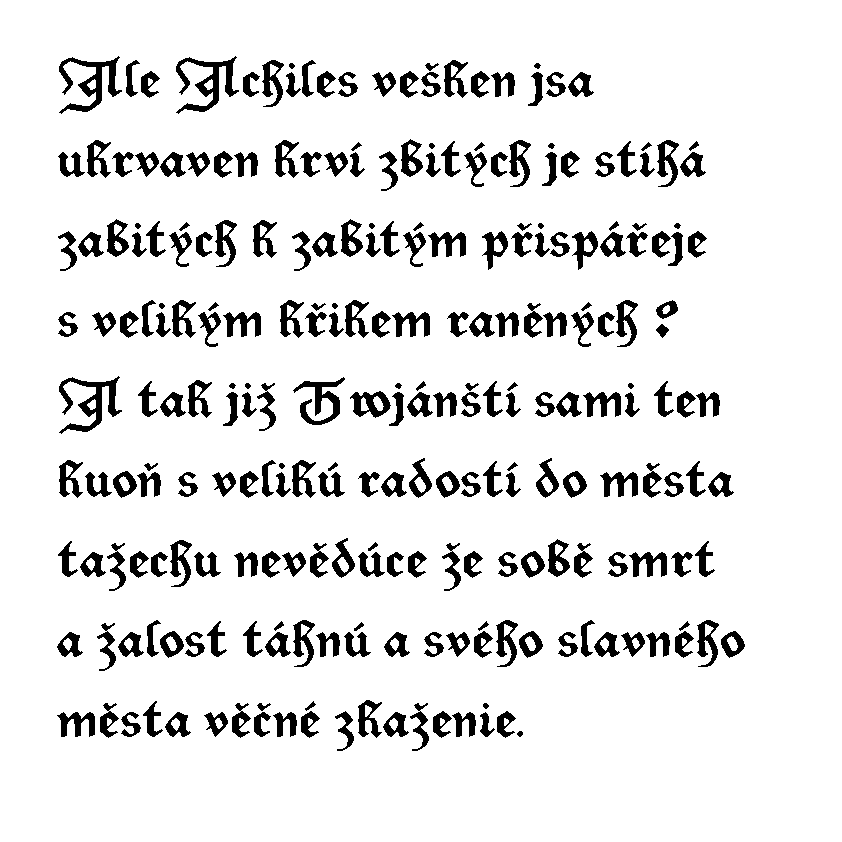 Ale Achiles vešken jsa
ukrvaven krví zbitých je stíhá
zabitých k zabitým přispářeje
s velikým křikem raněných ?
A tak již Trojánští sami ten
kuoň s velikú radostí do města
tažechu nevědúce že sobě smrt
a žalost táhnú a svého slavného
města věčné zkaženie.